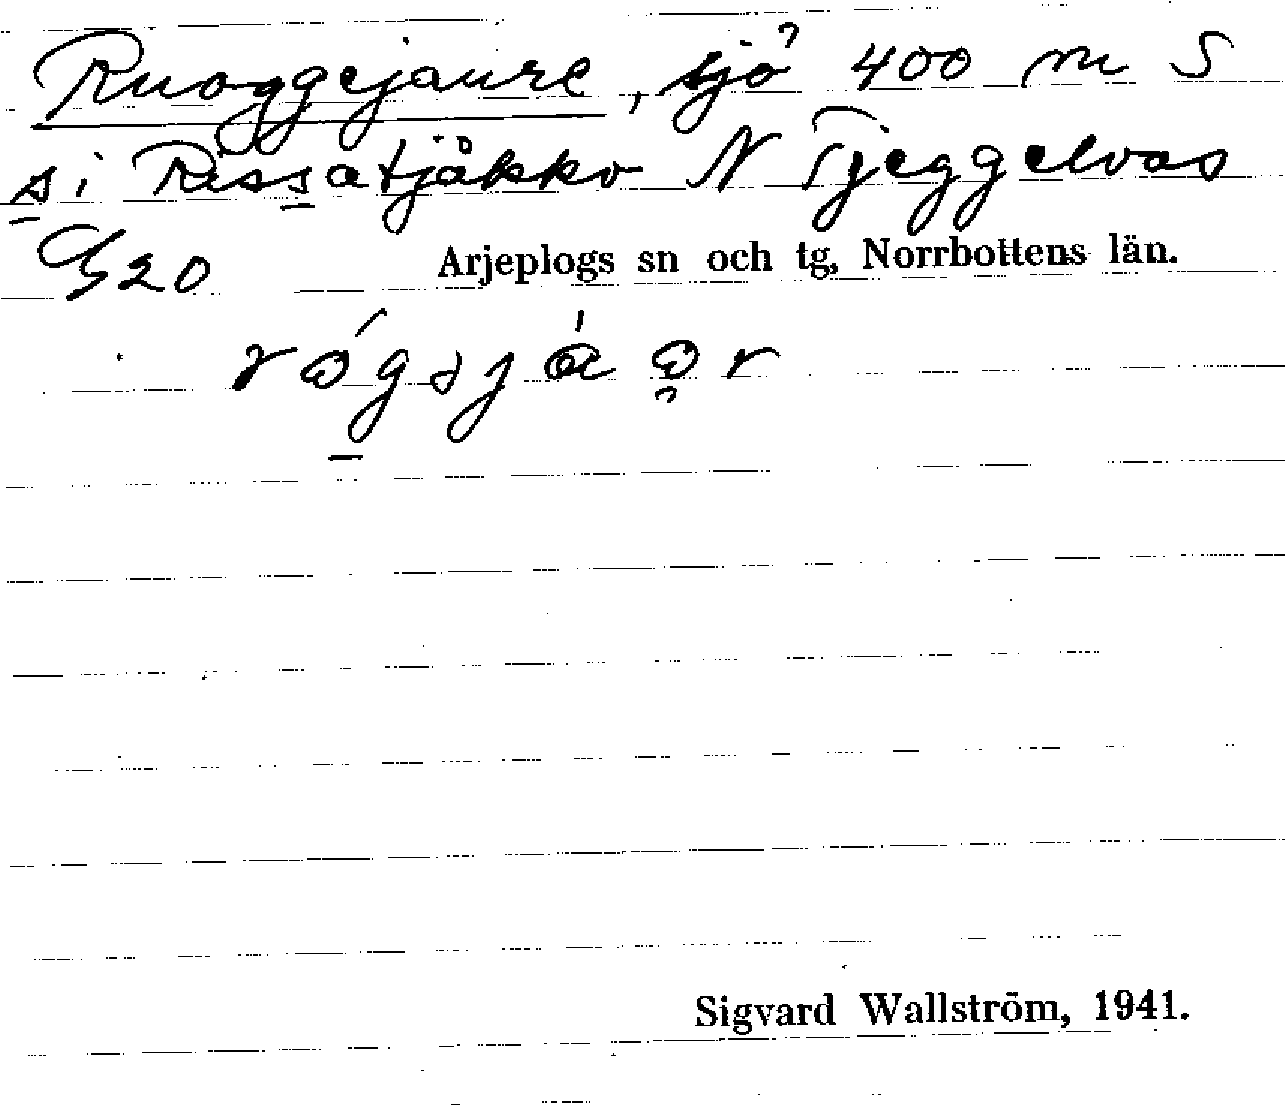 Ruoggejaure, sjö 400 m S
si Rissatjåkko N Tjeggelvas
G20
Arjeplogs sn och tg, Norrbottens län.
Sigvard Wallström, 1941.